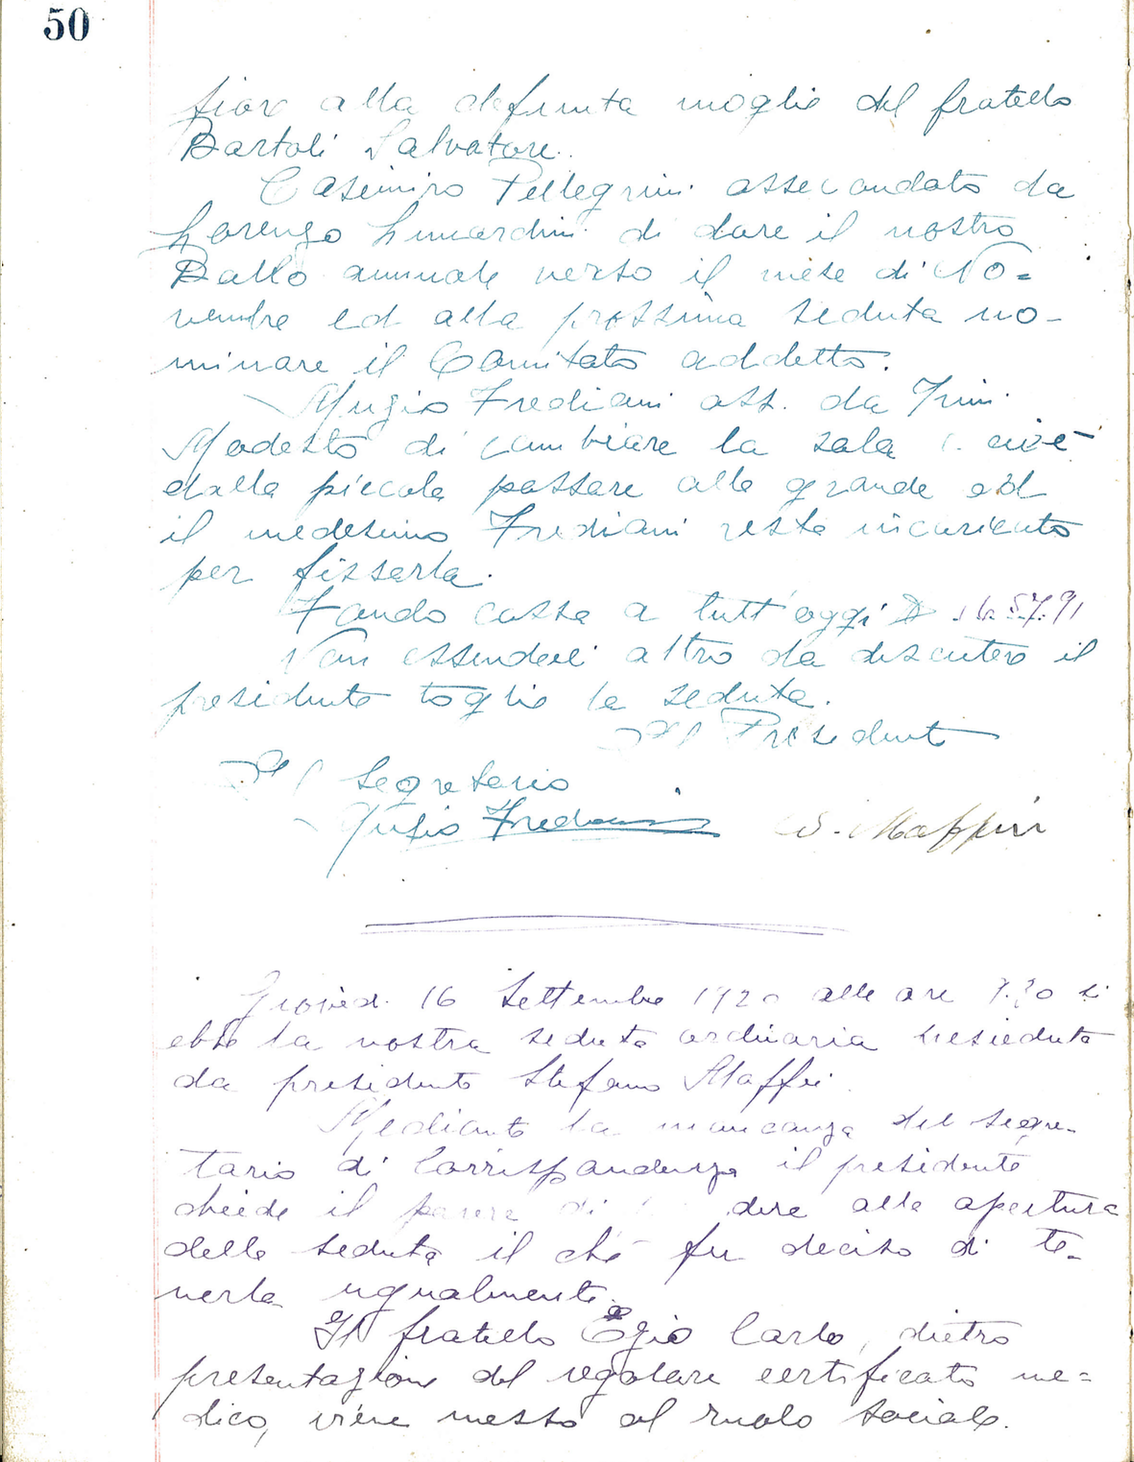 50
fiori alla defunta moglie del fratello
Bartoli Salvatore.
Casimiro Pellegrini assecondato da
Lorenzo Lunardini di dare il nostro
Ballo annuale verso il mese di No=
vembre ed alla prossima seduta no-
minare il Comitato addetto.
Muzio Frediani ass. da
Modesto di cambiare la sala cioè
dalla piccola passare alla grande ed
il medesimo Frediani resta incaricato
per fissarla.
Fondo cassa a tutt'oggi $
Non essendovi altro da discutere il
presidente toglie la seduta.
Il Presidente
Il Segretario
Muzio Frediani S. Maffei
Giovedì 16 Settembre 1920 alle ore 7.30 si
ebbe la nostra seduta ordinaria presieduta
da presidente Stefano Maffei.
Mediante la mancanza del segre-
tario di Corrispondenza il presidente
chiede il parere di dere alla apertura
della seduta il ché fu deciso di te-
nerla ugualmente.
Il fratello Egio Carlo, dietro
presentazione del regolare certificato me=
dico, viene messo al ruolo sociale.